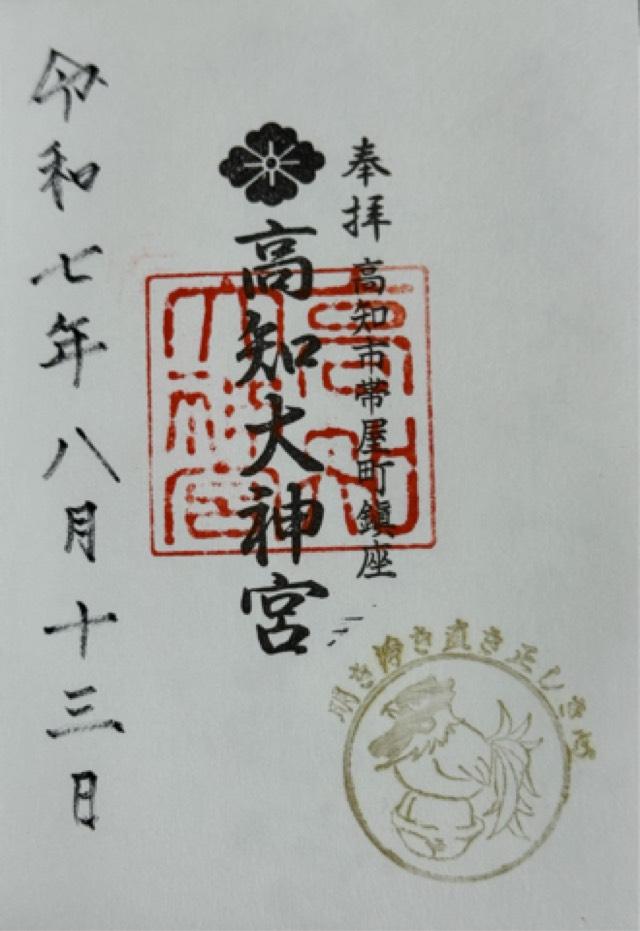 奉拝
高知市帯屋町鎮座
高知大神宮
令和七年八月十三日
明き浄き直き正しき